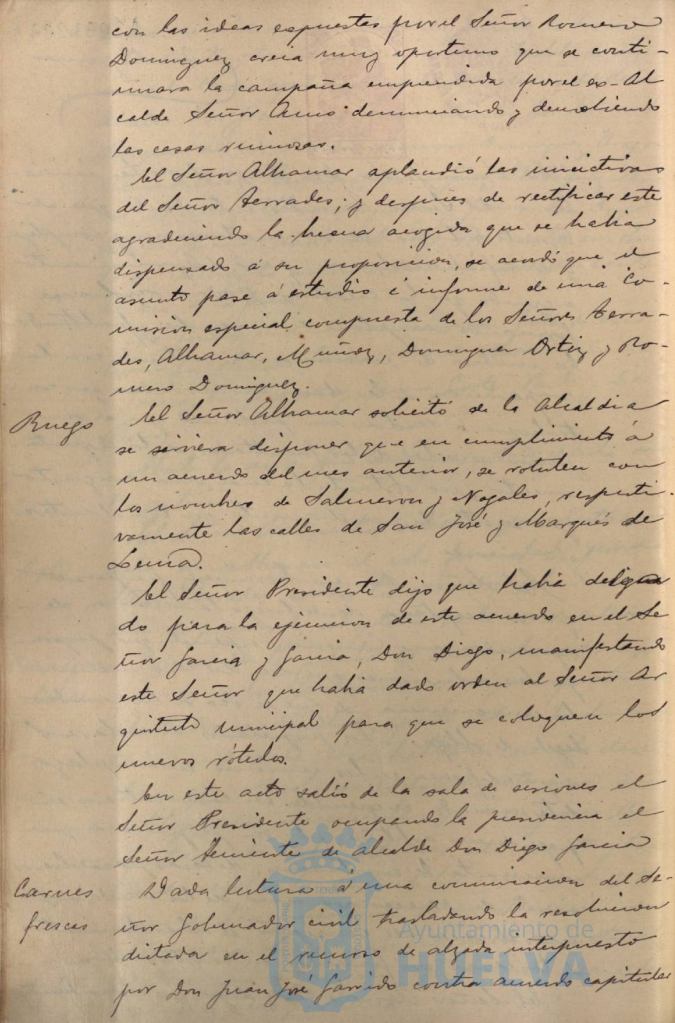 con las ideas expuestas por el Señor Romero
Dominguez creia muy oportuno que se conti-
nuara la campaña emprendida por el ex-Al
calde Señor denunciando y demoliendo
las casas ruinosas.
El Señor Alhamar aplaudió las iniciativas
del Señor Terrades; y despues de rectificar este
agradeciendo la buena acogida que se habia
dispensado á su proposicion, se acordó que el
asunto pase á estudio é informe de una Co-
mision especial compuesta de los Señores Terra-
des, Alhamar, Muñoz, Dominguez Ortiz y Ro-
mero Dominguez.
Ruego
El Señor Alhamar solicitó de la Alcaldia
se sirviera disponer que en cumplimiento á
un acuerdo del mes anterior, se rotulen con
los nombres de Salmeron y Nogales, respecti-
vamente las calles de San José y Marqués de
Lema.
El Señor Presidente dijo que habia delega
do para la ejecucion de este acuerdo en el Se
ñor Garcia y Garcia, Don Diego, manifestando
este Señor que habia dado orden al Señor Ar
quitecto municipal para que se coloquen los
nuevos rótulos.
En este acto salió de la sala de sesiones el
Señor Presidente ocupando la presidencia el
Señor Teniente de Alcalde Don Diego Garcia
Carnes
frescas
Dada lectura á una comunicacion del Se-
ñor Gobernador civil trasladando la resolucion
dictada en el recurso de alzada interpuesto
por Don Juan José Garrido contra acuerdo capitular
Ayuntamiento de
HUELVA